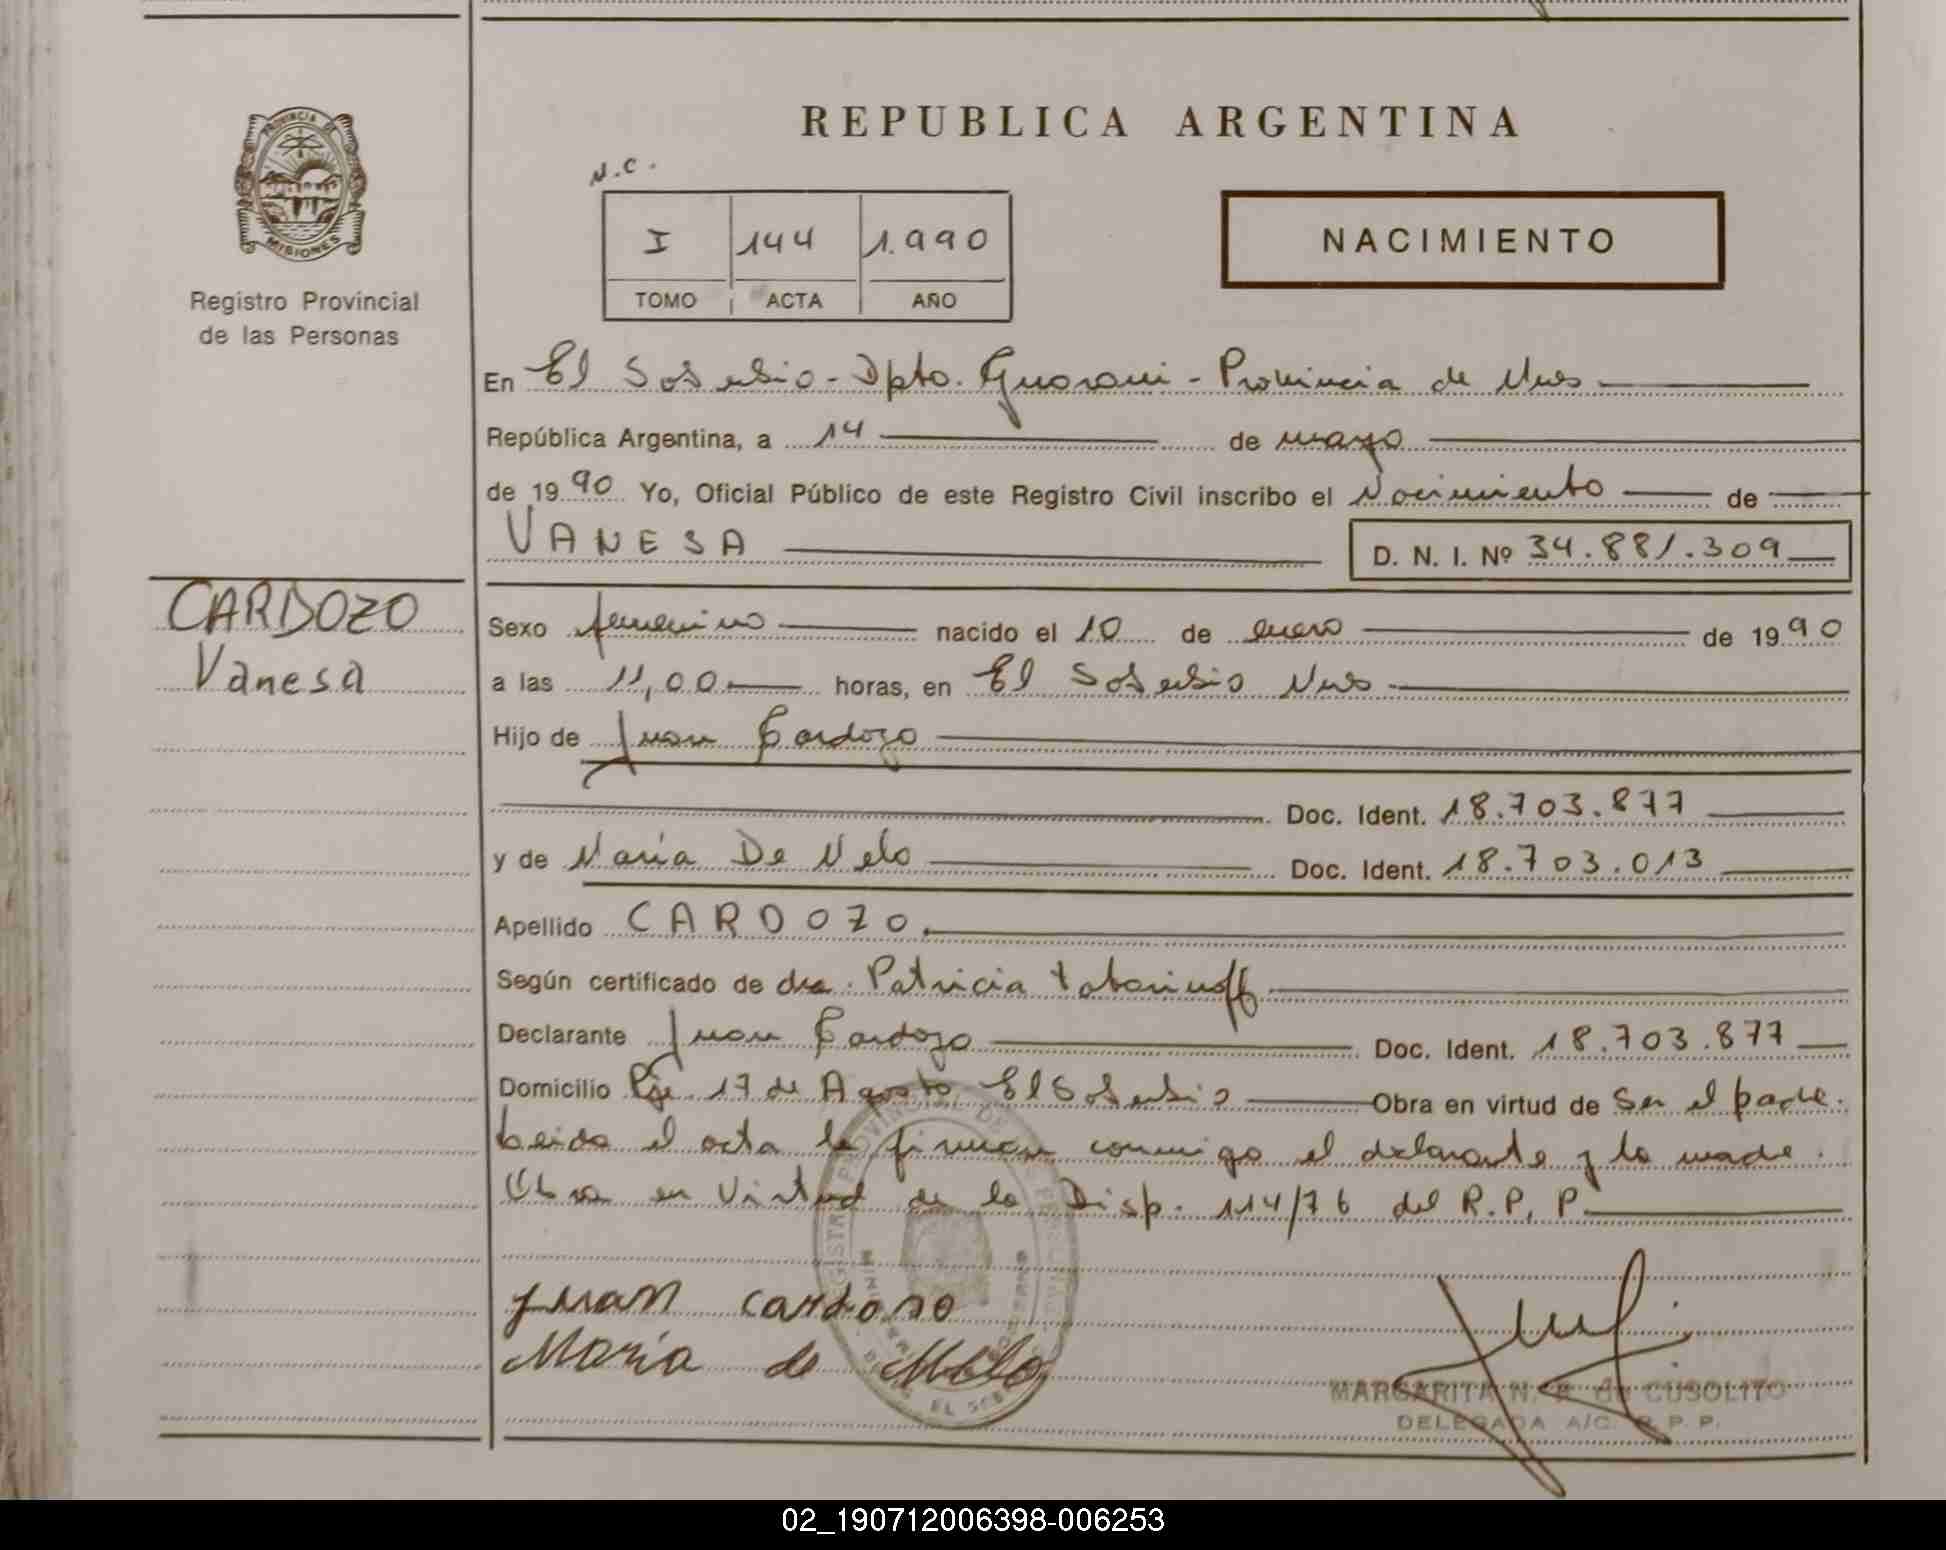 REPUBLICA ARGENTINA
PROVINCIA DE
MISIONES
Registro Provincial
de las Personas
N.C.
I 144 1.990
TOMO ACTA AÑO
NACIMIENTO
En El Soberbio - Dpto. Guarani - Provincia de Mnes
República Argentina, a 14 de mayo
de 1990 Yo, Oficial Público de este Registro Civil inscribo el Nacimiento de
VANESA
D. N. I. Nº 34.881.309
CARDOZO
Vanesa
Sexo femenino nacido el 10 de enero de 1990
a las 11,00 horas, en El Soberbio Mnes
Hijo de Juan Cardozo
Doc. Ident. 18.703.877
y de Maria De Melo Doc. Ident. 18.703.013
Apellido CARDOZO.
Según certificado de dra. Patricia
Declarante Juan Cardozo Doc. Ident. 18.703.877
Domicilio Pje. 17 de Agosto El Soberbio Obra en virtud de Ser el padre.
Leida el acta la firman conmigo el declarante y la madre.
Obra en Virtud de la Disp. 114/76 del R.P.P.
Juan Cardozo
Maria de Melo
MARGARITA N. de CUSOLITO
DELEGADA A/C. R.P.P.
02_190712006398-006253